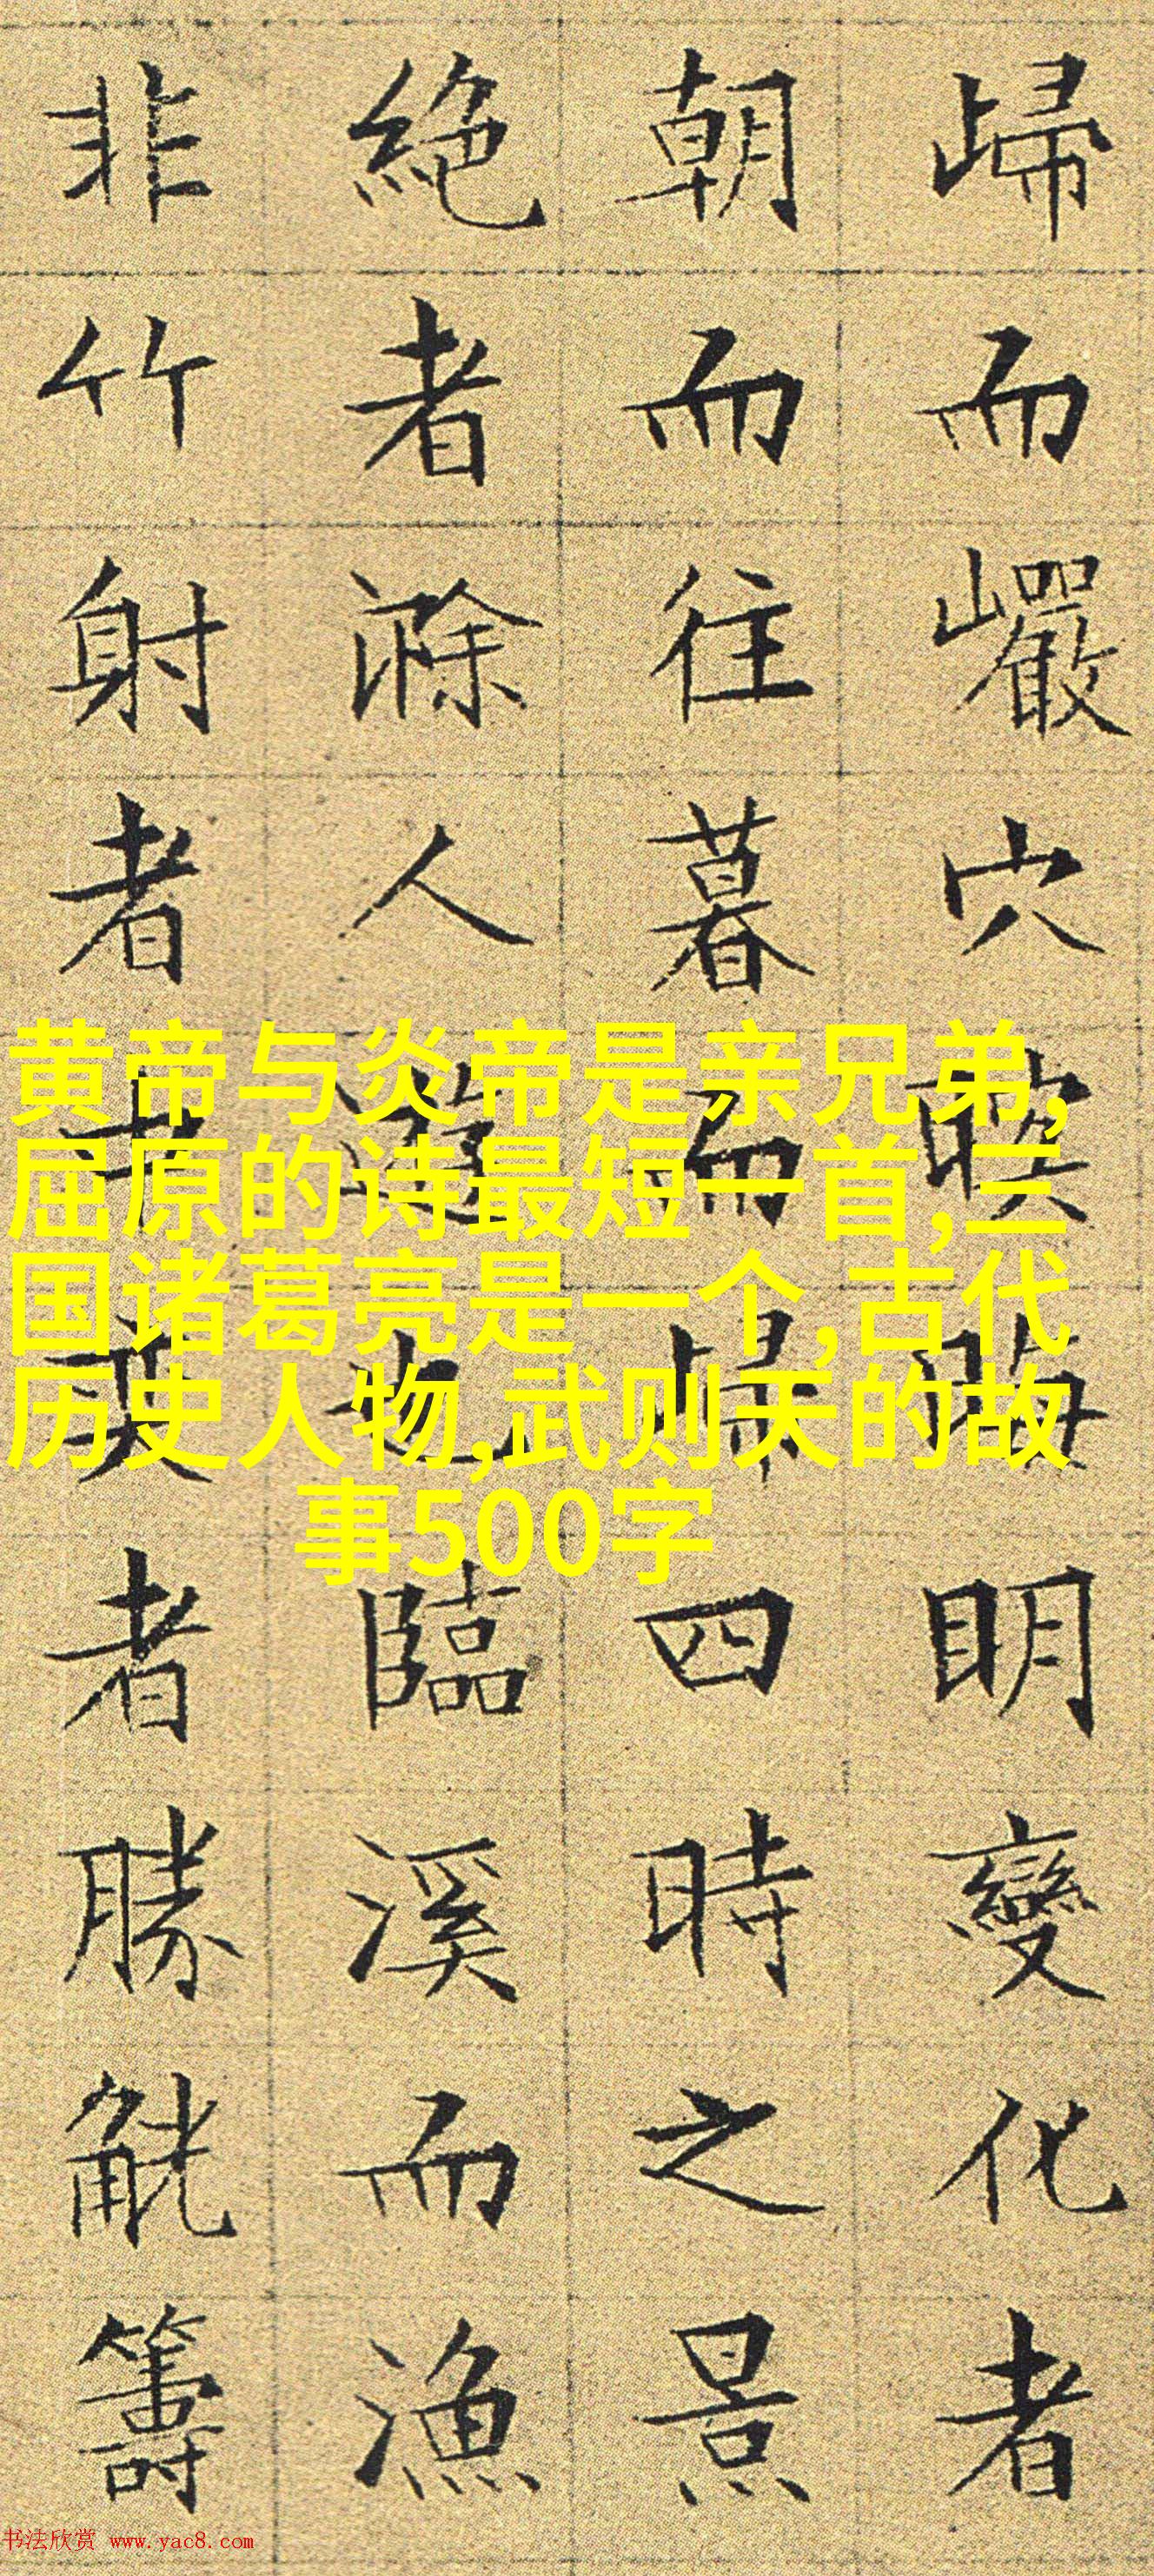 歸而巖穴暝晦明變化者
朝而往暮而歸四時之景
絕者滁人遊也臨溪而漁
非竹射者中奕者勝觥籌
黄帝与炎帝是亲兄弟,
屈原的诗最短一首,三
国诸葛亮是一个,古代
历史人物,武则天的故
事500字
书法欣赏 www.yac8.com